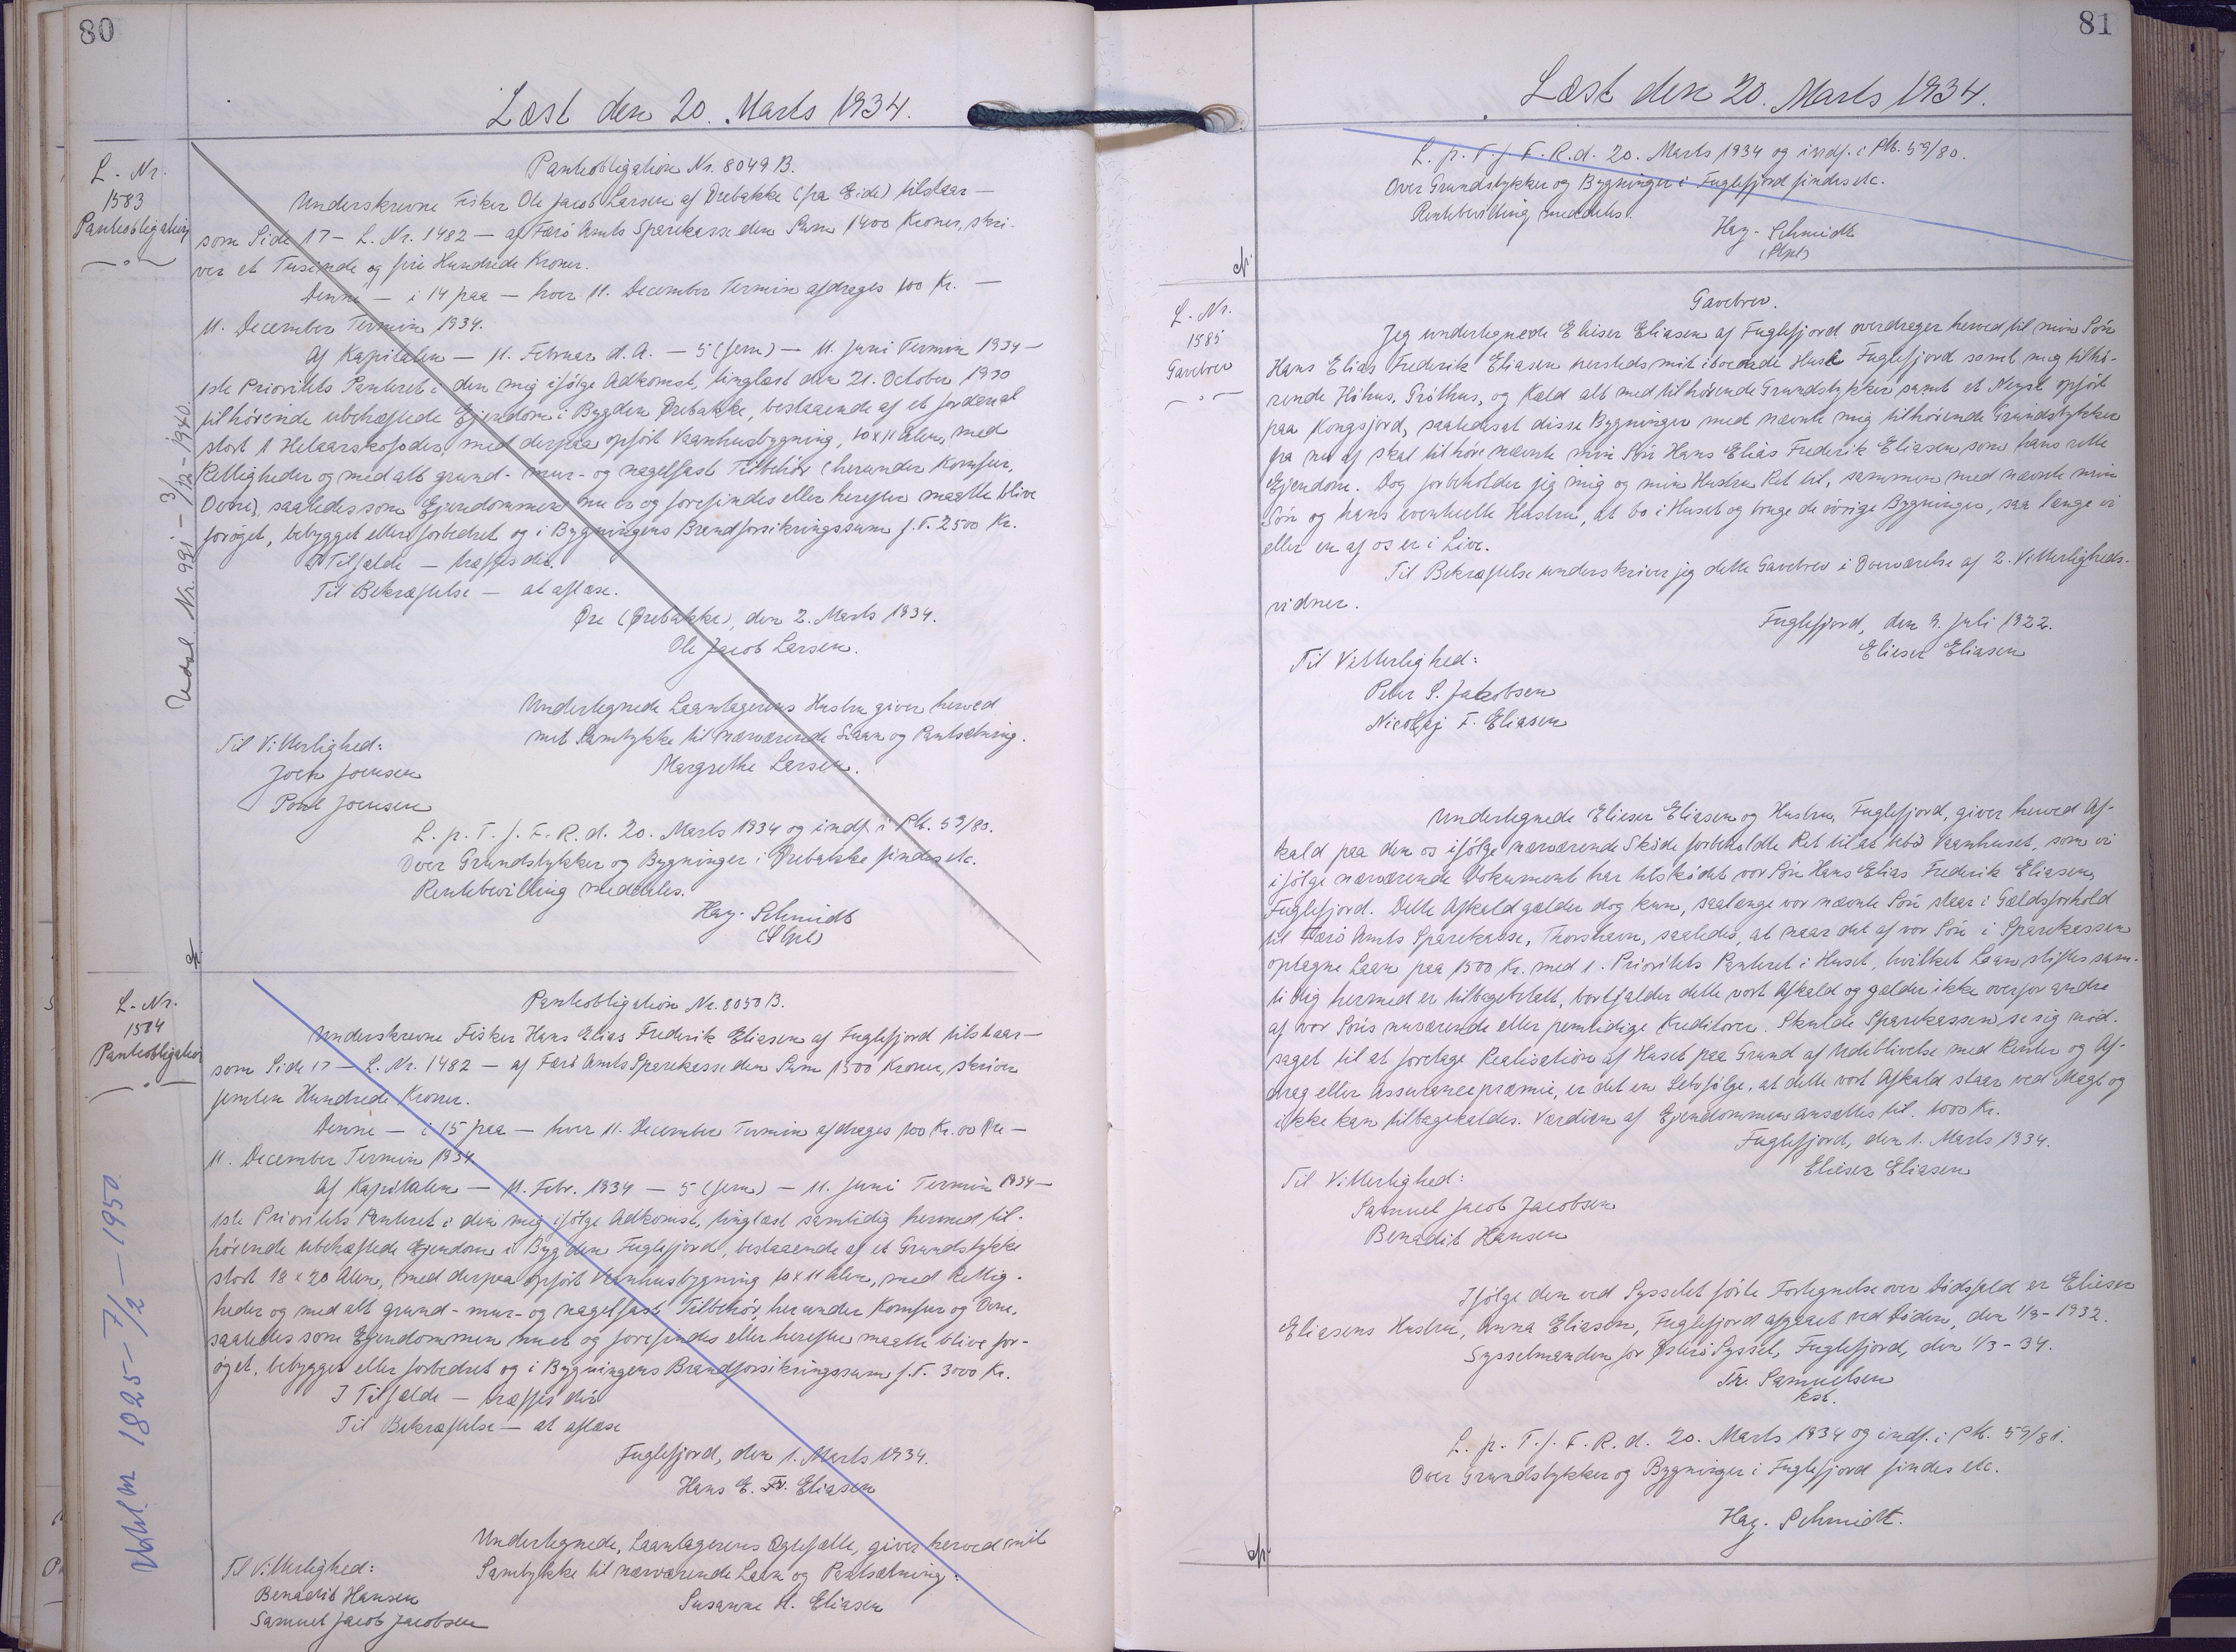 80
Læst den 20. Marts 1934.
L. Nr.
1583
Panteobligation
Panteobligation Nr. 8049 B.
Underskrevne Fisker Ole Jacob Larsen af Ørebakke (paa Eide) tilstaar —
som Side 17 — L. Nr. 1482 — af Færø Amts Sparekasse den Sum 1400 Kroner, skri-
ver et Tusinde og fire Hundrede Kroner.
Denne — i 14 paa — hver 11. December Termin afdrages 100 Kr. —
11. December Termin 1934.
Af Kapitalen — 11. Februar d. A. — 5 (fem) — 11. Juni Termin 1934 —
1ste Prioritets Panteret i den mig ifølge Adkomst, tinglæst den 21. October 1930
tilhørende ubehæftede Ejendom i Bygden Ørebakke, bestaaende af et Jordareal
stort 1 Helaarskofoder, med derpaa opført Vaanhusbygning, 10 x 11 Alen, med
Rettigheder og med alt grund- mur- og nagelfast Tilbehør (herunder Komfur,
Ovne), saaledes som Ejendommen nu er og forefindes eller herefter maatte blive
forøget, bebygget eller forbedret og i Bygningens Brandforsikringssum f.T. 2500 Kr.
I Tilfælde — træffes dir.
Til Bekræftelse — at aflæse.
Øre (Ørebakke), den 2. Marts 1934.
Ole Jacob Larsen.
Undertegnede Laantagerens Hustru giver herved
mit Samtykke til nærværende Laan og Pantsætning.
Margrethe Larsen.
Til Vitterlighed:
Joen Joensen
Poul Joensen
L. p. T. f. F. R. d. 20. Marts 1934 og indf. i Pb. 59/80.
Over Grundstykker og Bygninger i Ørebakke findes etc.
Rentebevilling meddeles.
Hay-Schmidt
Udsl. Nr. 991 - 3/12 - 1940
L. Nr.
1584
Panteobligation
Panteobligation Nr. 8050 B.
Underskrevne Fisker Hans Elias Frederik Eliasen af Fuglefjord tilstaar —
som Side 17 — L. Nr. 1482 — af Færø Amts Sparekasse den Sum 1500 Kroner, skriver
femten Hundrede Kroner.
Denne — i 15 paa — hver 11. December Termin afdrages 100 Kr. 00 Øre —
11. December Termin 1934
Af Kapitalen — 11. Febr. 1934 — 5 (fem) — 11. Juni Termin 1934 —
1ste Prioritets Panteret i den mig ifølge Adkomst, tinglæst samtidig hermed til-
hørende ubehæftede Ejendom i Bygden Fuglefjord, bestaaende af et Grundstykke
stort 18 x 20 Alen, med derpaa opført Vaanhusbygning 10 x 11 Alen, med Rettig-
heder og med alt grund- mur- og nagelfast Tilbehør, herunder Komfur og Ovne,
saaledes som Ejendommen nu er og forefindes eller herefter maatte blive for-
øget, bebygget eller forbedret og i Bygningens Brandforsikringssum f.T. 3000 Kr.
I Tilfælde — træffes dir
Til Bekræftelse — at aflæse
Fuglefjord, den 1. Marts 1934.
Hans E. Fr. Eliasen
Undertegnede, Laantagerens Ægtefælle, giver herved mit
Samtykke til nærværende Laan og Pantsætning:
Susanne H. Eliasen
Til Vitterlighed:
Benadit Hansen
Samuel Jacob Jacobsen
1825 - 7/2 - 1950
81
Læst den 20. Marts 1934.
L. p. T. f. F. R. d. 20. Marts 1934 og indf. i Pb. 59/80.
Over Grundstykker og Bygninger i Fuglefjord findes etc.
Rentebevilling meddeles.
Hay-Schmidt
L. Nr.
1585
Gavebrev
Gavebrev.
Jeg undertegnede Elieser Eliasen af Fuglefjord overdrager herved til min Søn
Hans Elias Frederik Eliasen versteds mit iboende Hus i Fuglefjord samt mig tilhø-
rende Høhus, Gróthus, og Kæld alt med tilhørende Grundstykker samt et Neyst opført
paa Kongsjord, saaledes at disse Bygninger med nævnte mig tilhørende Grundstykker
fra nu af skal tilhøre nævnte min Søn Hans Elias Frederik Eliasen som hans rette
Ejendom. Dog forbeholder jeg mig og min Hustru Ret til, sammen med nævnte min
Søn og hans eventuelle Hustru, at bo i Huset og bruge de øvrige Bygninger, saa længe vi
eller en af os er i Live.
Til Bekræftelse underskriver jeg dette Gavebrev i Overværelse af 2. Vitterligheds-
vidner.
Fuglefjord, den 9. Juli 1922.
Elieser Eliasen
Til Vitterlighed:
Peter S. Jakobsen
Nicolaj F. Eliasen
Undertegnede Elieser Eliasen og Hustru, Fuglefjord, giver herved Af-
kald paa den os ifølge nærværende Skøde forbeholdte Ret til at bebo Vaanhuset, som vi
ifølge nærværende Dokument har tilskødet vor Søn Hans Elias Frederik Eliasen,
Fuglefjord. Dette Afkald gælder dog kun, saalænge vor nævnte Søn staar i Gældsforhold
til Færø Amts Sparekasse, Thorshavn, saaledes, at naar det af vor Søn i Sparekassen
optagne Laan paa 1500 Kr. med 1. Prioritets Panteret i Huset, hvilket Laan stiftes sam-
tidig hermed er tilbagebetalt, bortfalder dette vort Afkald og gælder ikke overfor andre
af vor Søns nuværende eller fremtidige Kreditorer. Skulde Sparekassen se sig nød-
saget til at foretage Realisation af Huset paa Grund af Udeblivelse med Renter og Af-
drag eller Assurancepræmie, er det en Selvfølge, at dette vort Afkald staar ved Magt og
ikke kan tilbagekaldes. Værdien af Ejendommen ansættes til 1000 Kr.
Fuglefjord, den 1. Marts 1934.
Elieser Eliasen
Til Vitterlighed:
Samuel Jacob Jacobsen
Benadit Hansen
Ifølge den ved Sysselet førte Fortegnelse over Dødsfald er Elieser
Eliasens Hustru, Anna Eliasen, Fuglefjord afgaaet ved Døden, den 1/8 - 1932.
Sysselmanden for Østerø Syssel, Fuglefjord, den 1/3 - 34.
Fr. Samuelsen
kst.
L. p. T. f. F. R. d. 20. Marts 1934 og indf. i Pb. 59/81.
Over Grundstykker og Bygninger i Fuglefjord findes etc.
Hay-Schmidt.